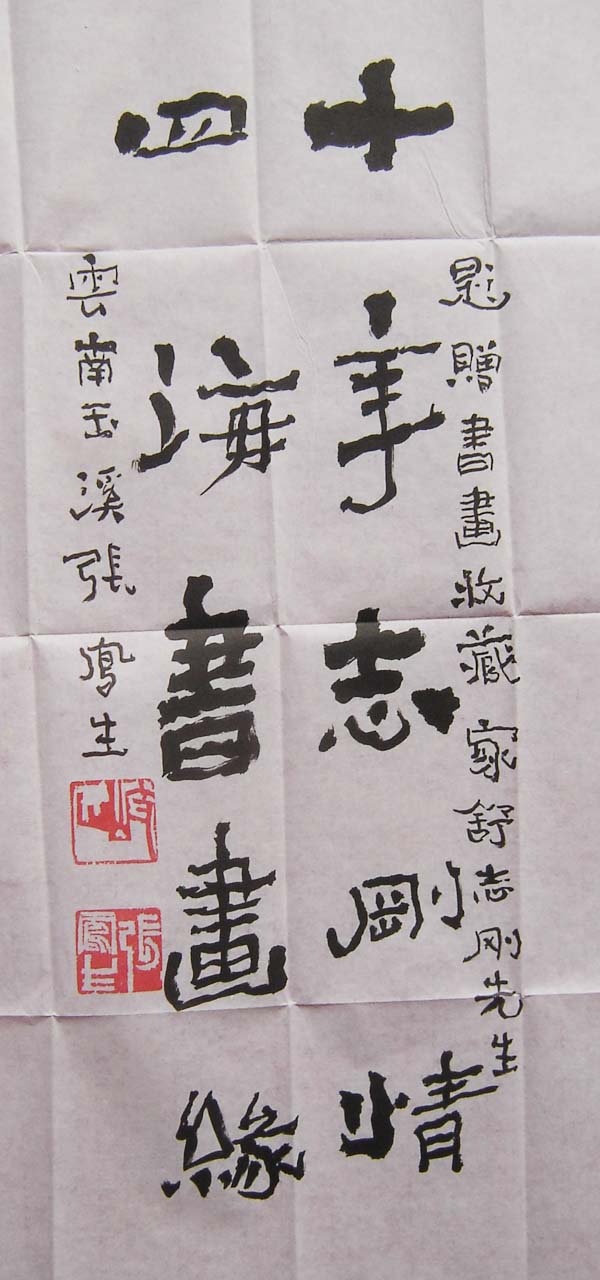 题贈書畫收藏家舒志刚先生
十年志剛情
四海書畫緣
雲南玉溪張鳳生
張鳳生